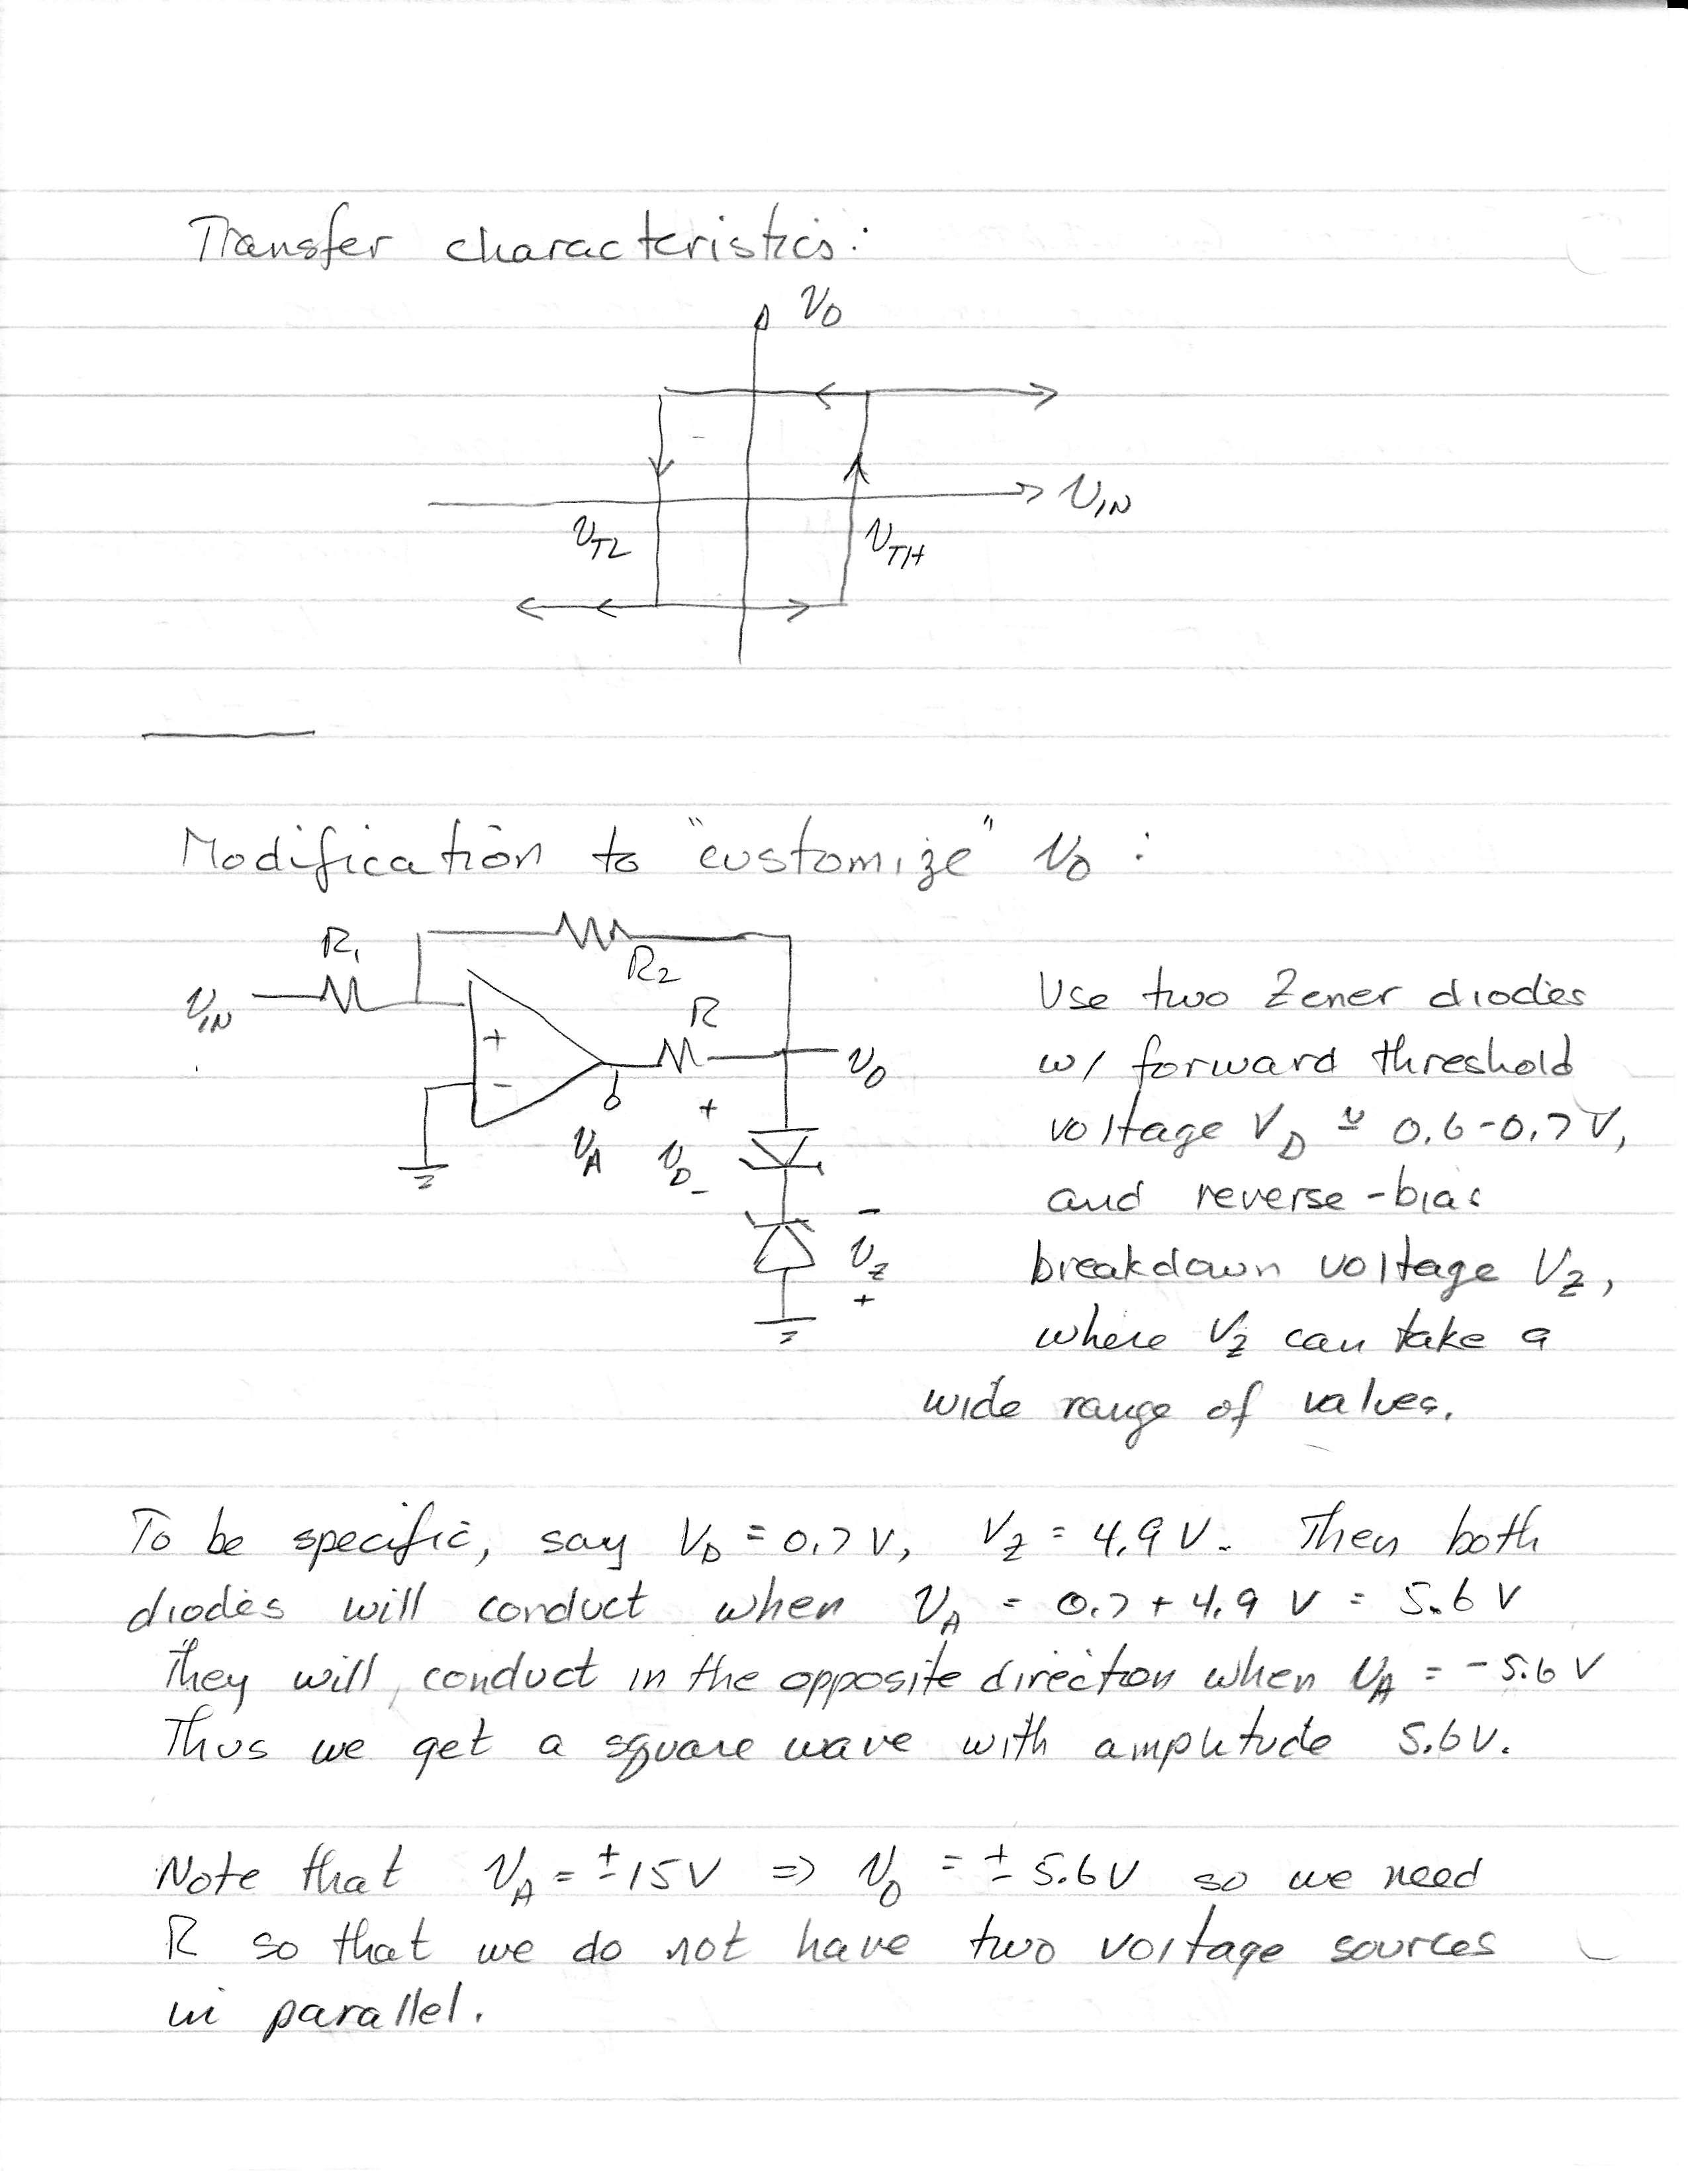 Transfer characteristics:
V₀
V_IN
V_TL
V_TH
Modification to "customize" V₀ :
R₁
R₂
V_IN
R
+
-
V₀
V_A
+
V_D
-
-
V_Z
+
Use two Zener diodes
w/ forward threshold
voltage V_D ≃ 0.6-0.7V,
and reverse-bias
breakdown voltage V_Z,
where V_Z can take a
wide range of values.
To be specific, say V_D = 0.7 V, V_Z = 4.9 V. Then both
diodes will conduct when V_A = 0.7 + 4.9 V = 5.6 V
They will conduct in the opposite direction when V_A = -5.6 V
Thus we get a square wave with amplitude 5.6V.
Note that V_A = ±15V => V₀ = ±5.6V so we need
R so that we do not have two voltage sources
in parallel.